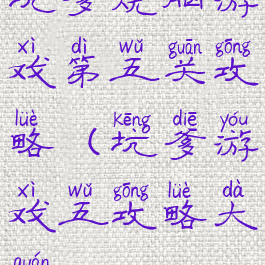 坑爹烧脑游
xì dì wǔ guān gōng
戏第五关攻
lüè kēng diē yóu
略（坑爹游
xì wǔ gōng lüè dà
戏五攻略大
quán